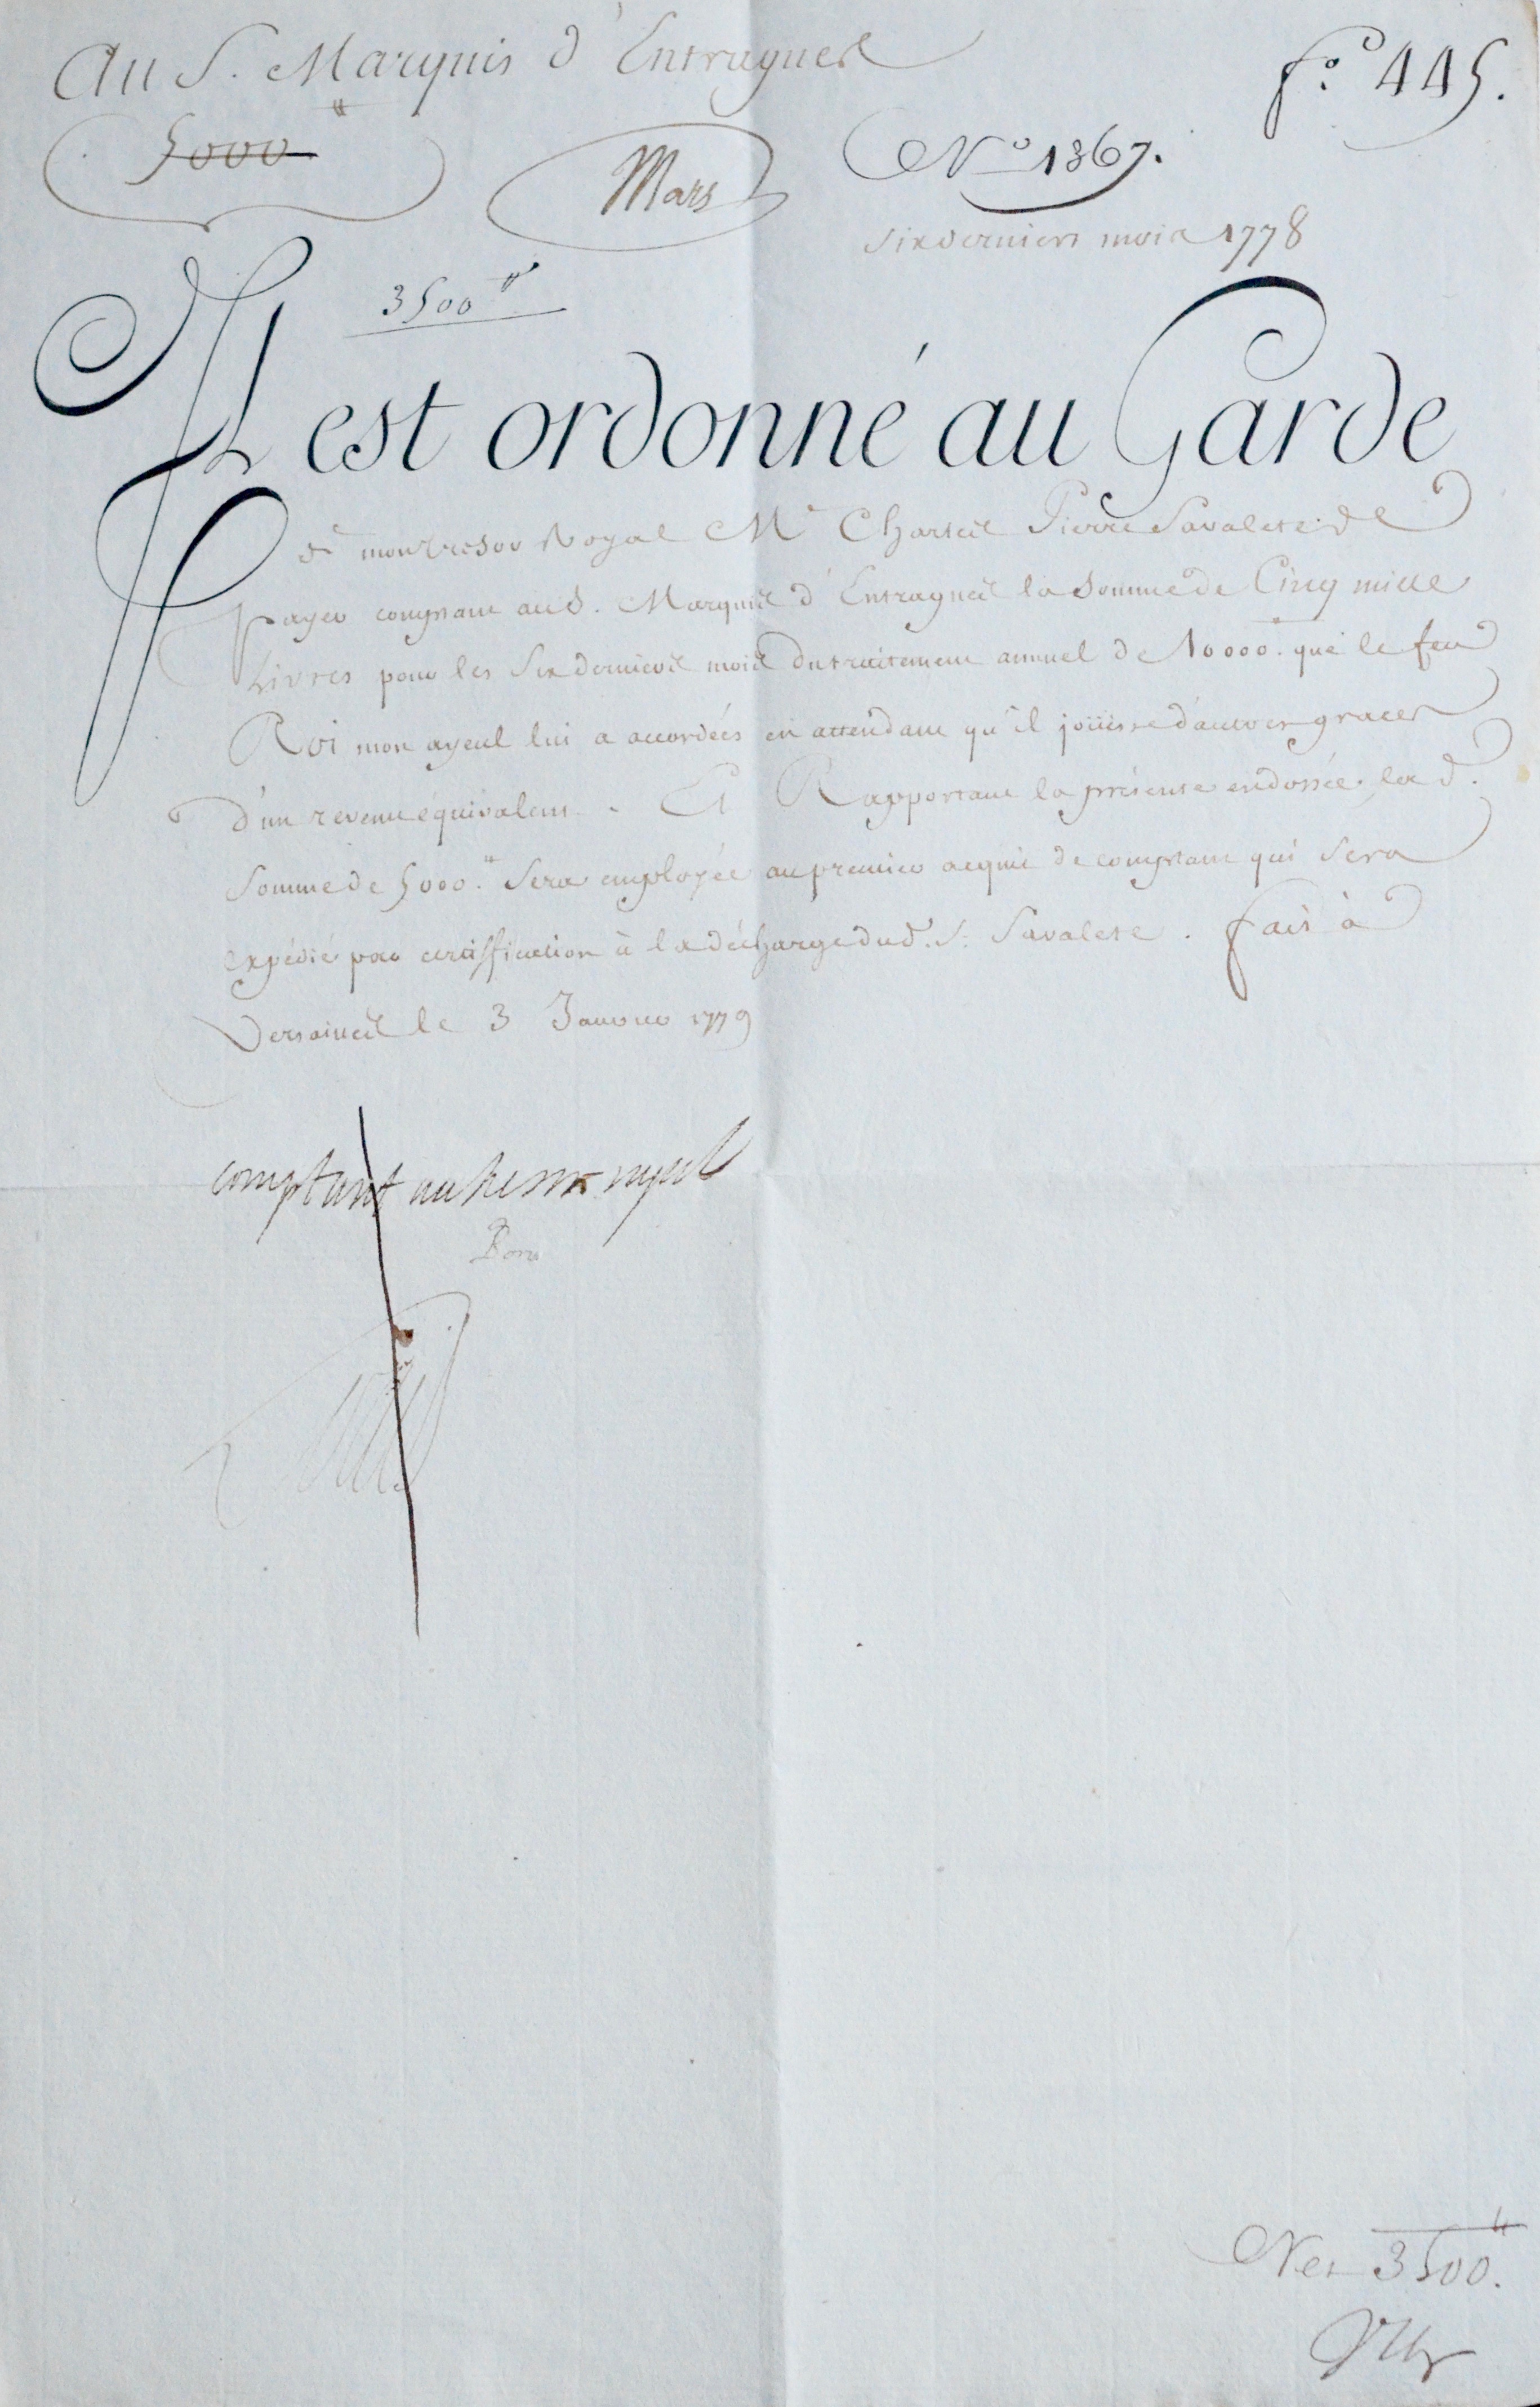 Au S. Marquis d'Entragues
fo. 445.
5000ᵗᵗ
Mars
No 1367.
Six derniers mois 1778
3500ᵗᵗ
Il est ordonné au Garde
de mon tresor Royal Me Charles Pierre Savalete de
payer comptant au S. Marquis d'Entragues la somme de Cinq mille
Livres pour les Six derniers mois du traitement annuel de 10000.ᵗᵗ que le feu
Roi mon ayeul lui a accordées en attendant qu'il joüisse d'autres graces
d'un revenu équivalent. Et Rapportant la présente endossée, lad.
Somme de 5000.ᵗᵗ Sera employée au premier acquit de comptant qui Sera
expédié par certiffication à la décharge dud. S. Savalete. Fait à
Versailles le 3 Janvier 1779
comptant au tresor royal
Bon
Net 3500.ᵗᵗ